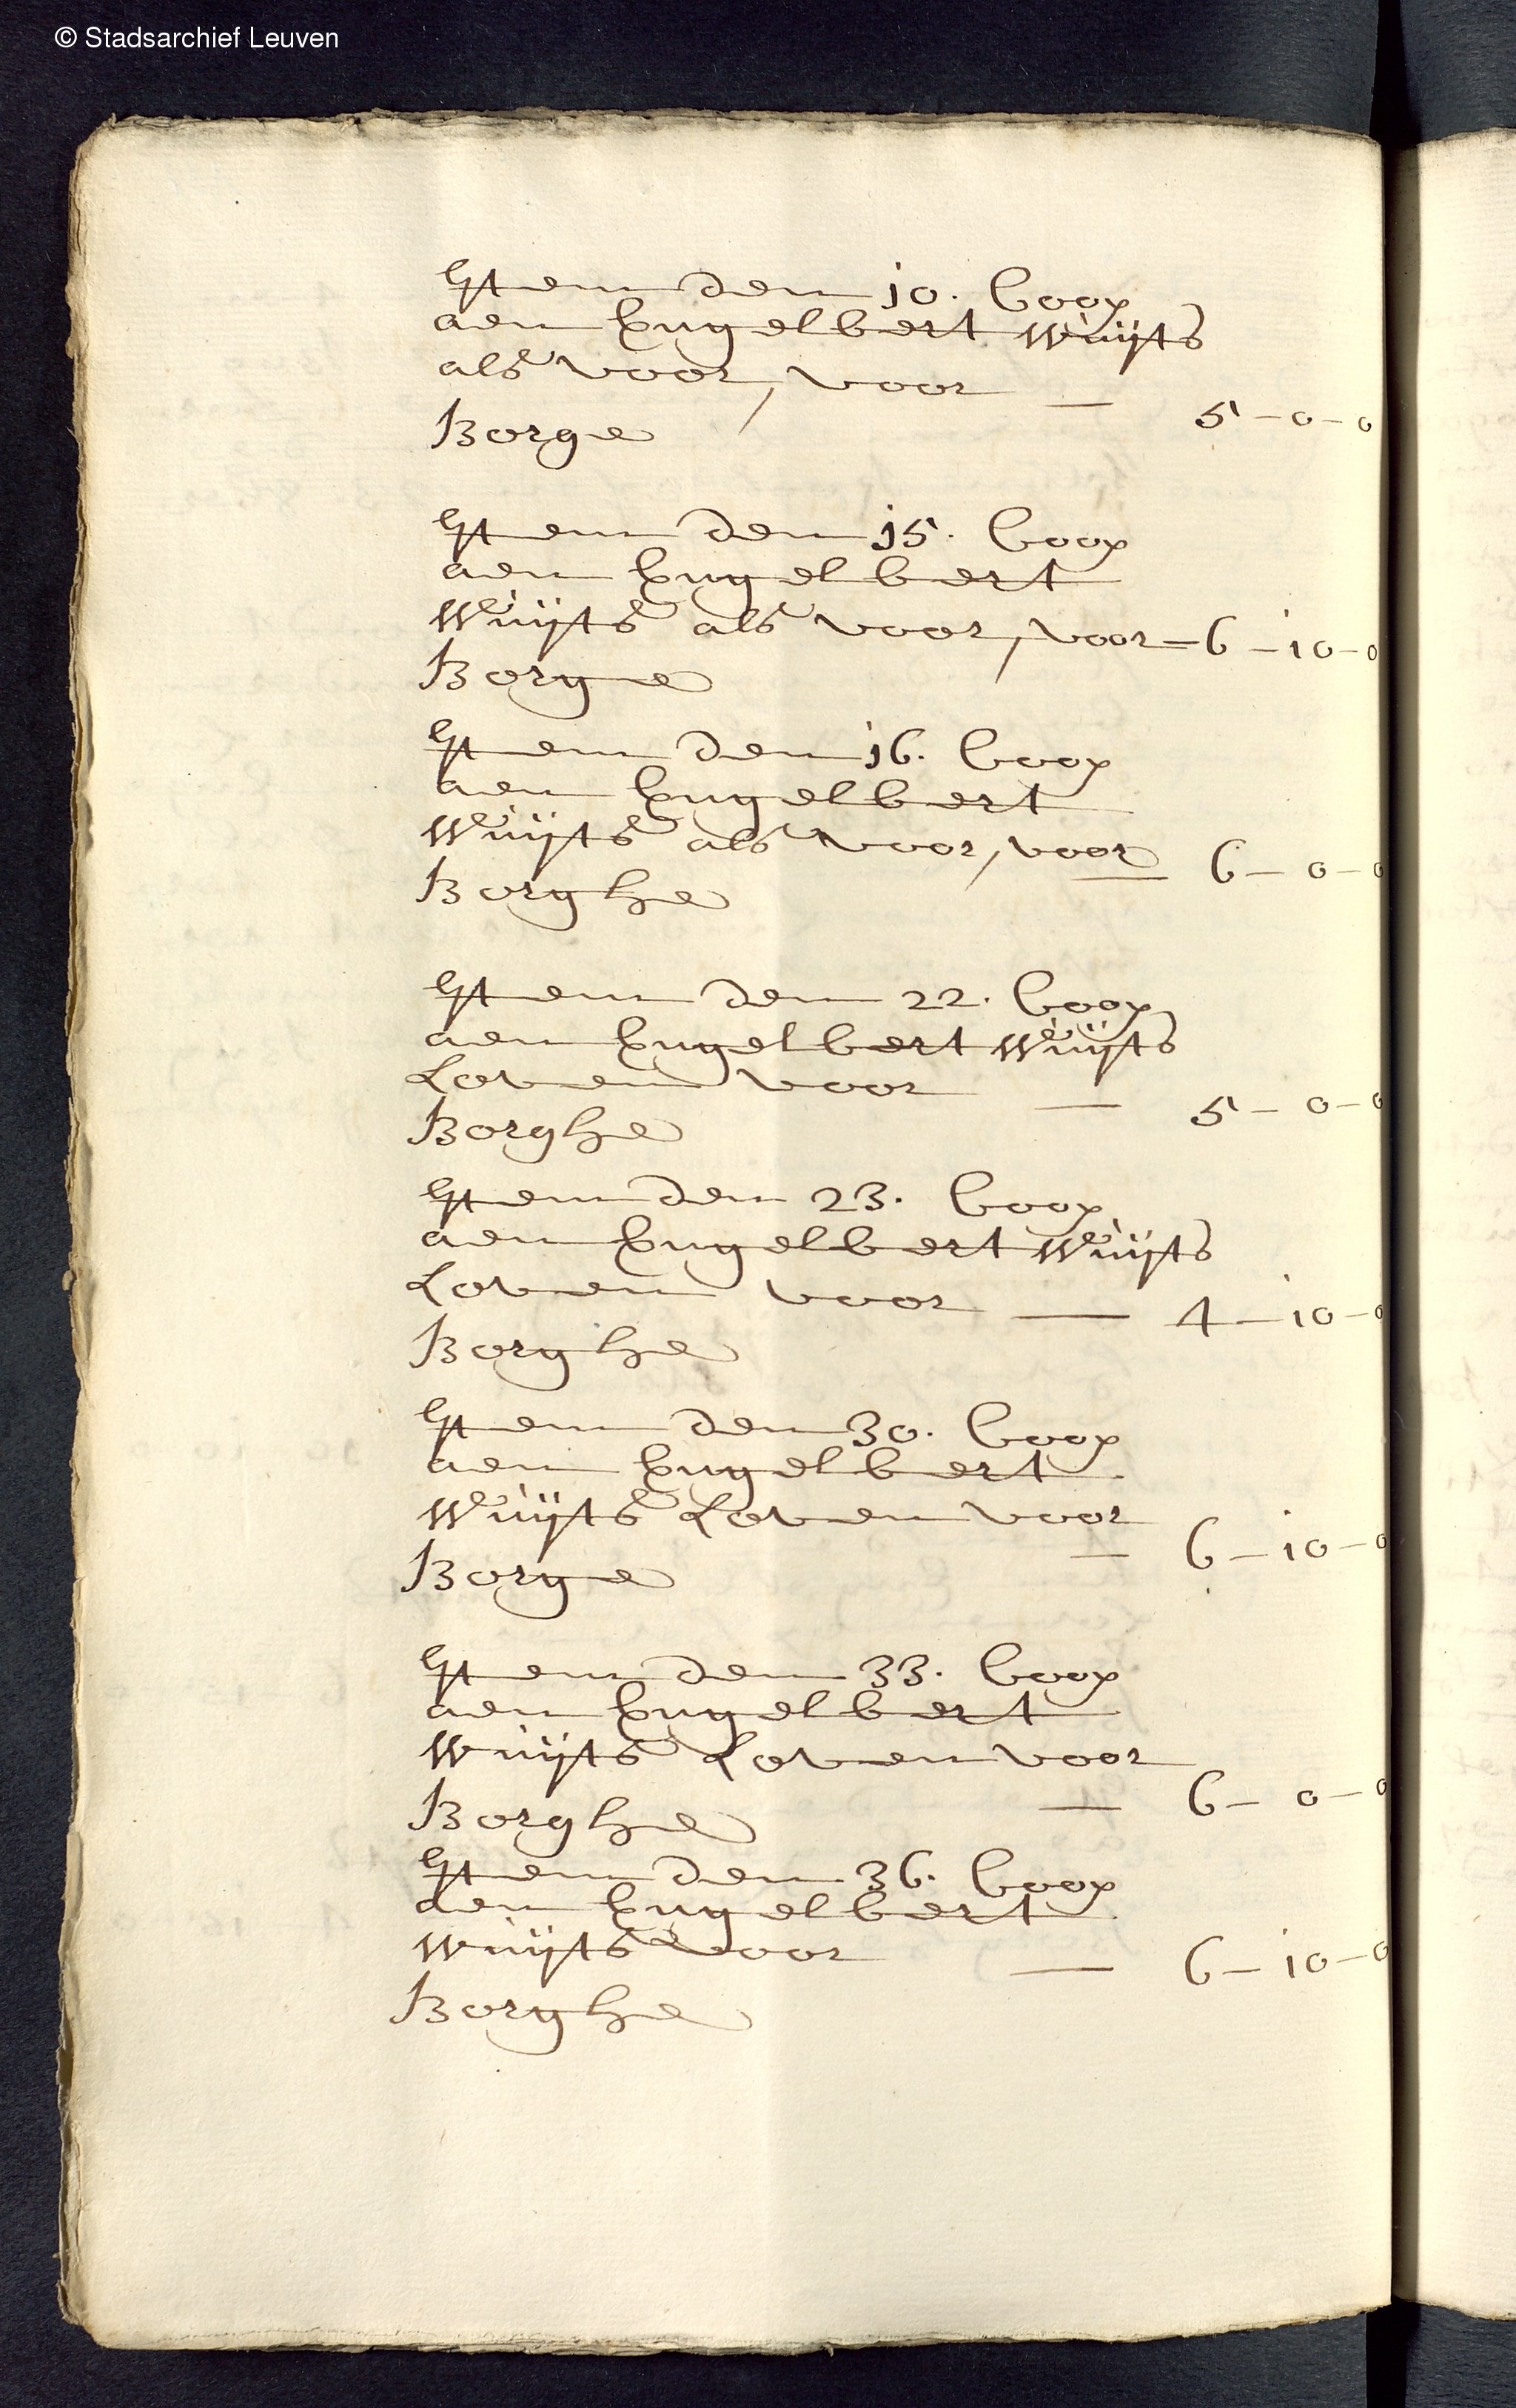 © Stadsarchief Leuven
Item den 10. Coop
aen Engelbert Wuijts
als voor, voor — 5-0-0
Borge
Item den 15. Coop
aen Engelbert
Wuijts als voor, voor - 6-10-0
Borge
Item den 16. Coop
aen Engelbert
Wuijts als voor, voor — 6-0-0
Borghe
Item den 22. Coop
aen Engelbert Wuijts
Loven voor — 5-0-0
Borghe
Item den 23. Coop
aen Engelbert Wuijts
Loven voor — 4-10-0
Borghe
Item den 30. Coop
aen Engelbert
Wuijts Loven voor — 6-10-0
Borge
Item den 33. Coop
aen Engelbert
Wuijts Loven voor
Borghe — 6-0-0
Item den 36. Coop
aen Engelbert
Wuijts voor — 6-10-0
Borghe